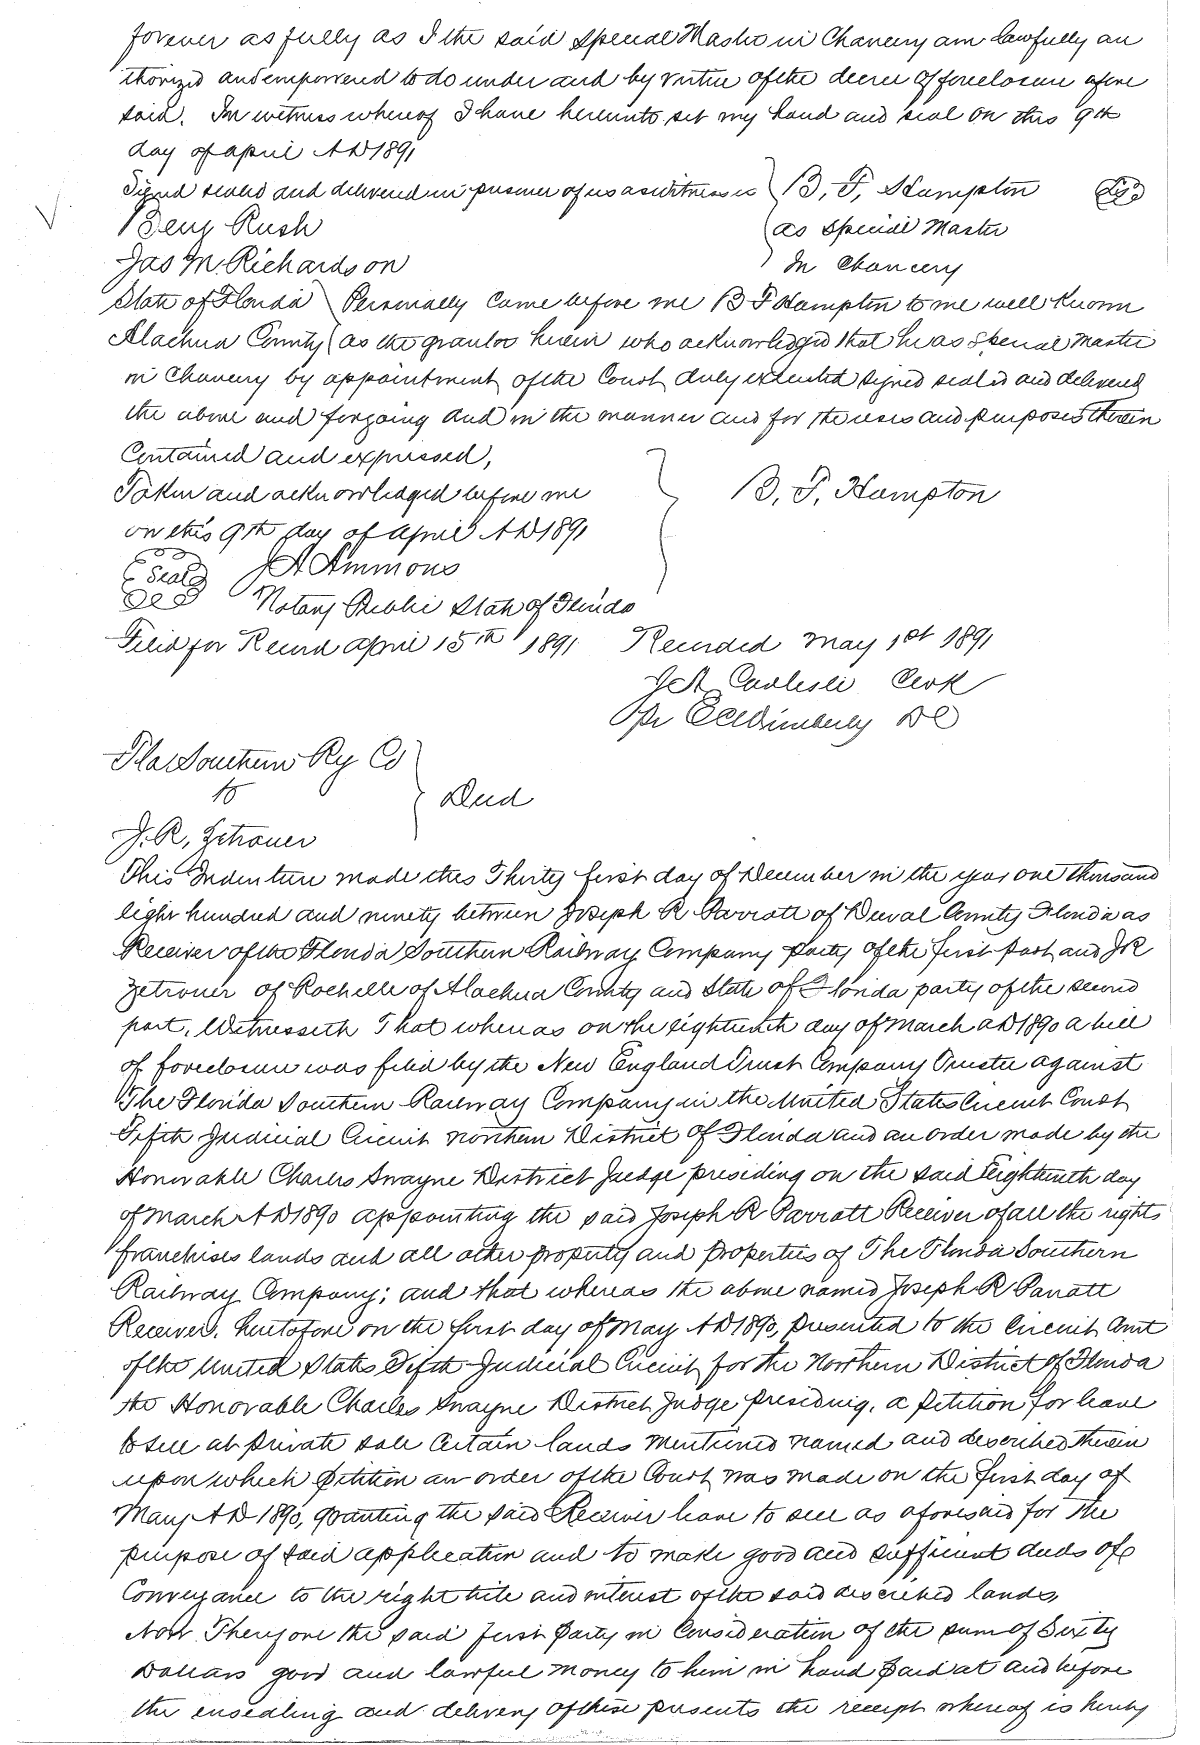 forever as fully as I the said Special Master in Chancery am lawfully au
thorized and empowered to do under and by virtue of the decree of foreclosure afore
said. In witness whereof I have hereunto set my hand and seal on this 9th
day of April A D 1891
Signed sealed and delivered in presence of us as witnesses B. F. Hampton
Benj Rush as Special Master
Jas M. Richardson In Chancery
State of Florida Personally came before me B F Hampton to me well known
Alachua County as the grantor herein who acknowledged that he as Special Master
in Chancery by appointment of the Court duly executed signed sealed and delivered
the above and forgoing and in the manner and for the uses and purposes therein
Contained and expressed,
Taken and acknowledged before me B. F. Hampton
on this 9th day of April A D 1891
Seal J A Ammons
Notary Public State of Florida
Filed for Record April 15th 1891 Recorded May 1st 1891
J A Carlisle Clerk
Pr E C Wimberly D C
Fla Southern Ry Co
to Deed
J. R. Zetrouer
This Indenture made this Thirty first day of December in the year one thousand
eight hundred and ninety between Joseph R Parrott of Duval County Florida as
Receiver of the Florida Southern Railway Company party of the first part and J R
Zetrouer of Rochelle of Alachua County and State of Florida party of the second
part. Witnesseth That whereas on the eighteenth day of March A D 1890 a bill
of foreclosure was filed by the New England Trust Company Trustee against
The Florida Southern Railway Company in the United States Circuit Court
Fifth Judicial Circuit Northern District of Florida and an order made by the
Honorable Charles Swayne District Judge presiding on the said Eighteenth day
of March A D 1890 appointing the said Joseph R Parrott Receiver of all the rights
franchises lands and all other property and properties of The Florida Southern
Railway Company; and that whereas the above named Joseph R Parrott
Receiver. heretofore on the first day of May A D 1890, presented to the Circuit Court
of the United States Fifth Judicial Circuit for the Northern District of Florida
the Honorable Charles Swayne District Judge presiding, a petition for leave
to sell at private sale Certain lands mentioned named and described therein
upon which petition an order of the Court was made on the first day of
May A D 1890, granting the said Receiver leave to sell as aforesaid for the
purpose of said application and to make good and sufficient deeds of
Conveyance to the right title and interest of the said described lands,
Now Therefore the said first party in Consideration of the sum of Sixty
Dollars good and lawful money to him in hand paid at and before
the ensealing and delivery of these presents the receipt whereof is hereby